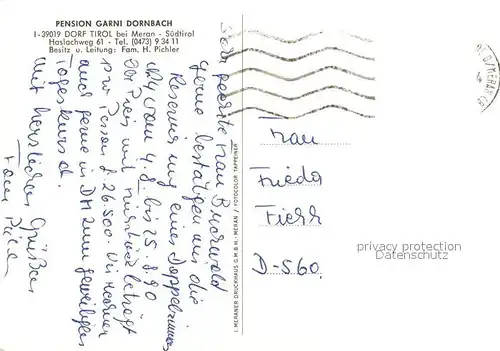 PENSION GARNI DORNBACH
I-39019 DORF TIROL bei Meran - Südtirol
Haslachweg 61 - Tel. (0473) 9 34 11
Besitz u. Leitung: Fam. H. Pichler
Sehr geehrte Frau
Gerne bestätigen wir die
Reservierung eines Doppelzimmers
vom 4.8. bis 25.8.90
Der Preis mit Frühstück beträgt
pro Person L 26.500. Wir
auch gerne in DM zum jeweiligen
Tageskurs
Mit herzlichen Grüßen
Fam. Pichler
I. MERANER DRUCKHAUS G.M.B.H.-MERAN / FOTOCOLOR TAPPEINER
Frau
Frieda
D-560
privacy protection
oldthing.de